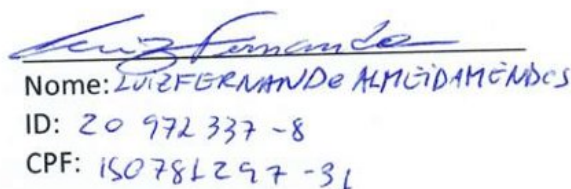 Luiz Fernando
Nome: LUIZFERNANDO ALMEIDAMENDES
ID: 20 972 337 -8
CPF: 150781297-31